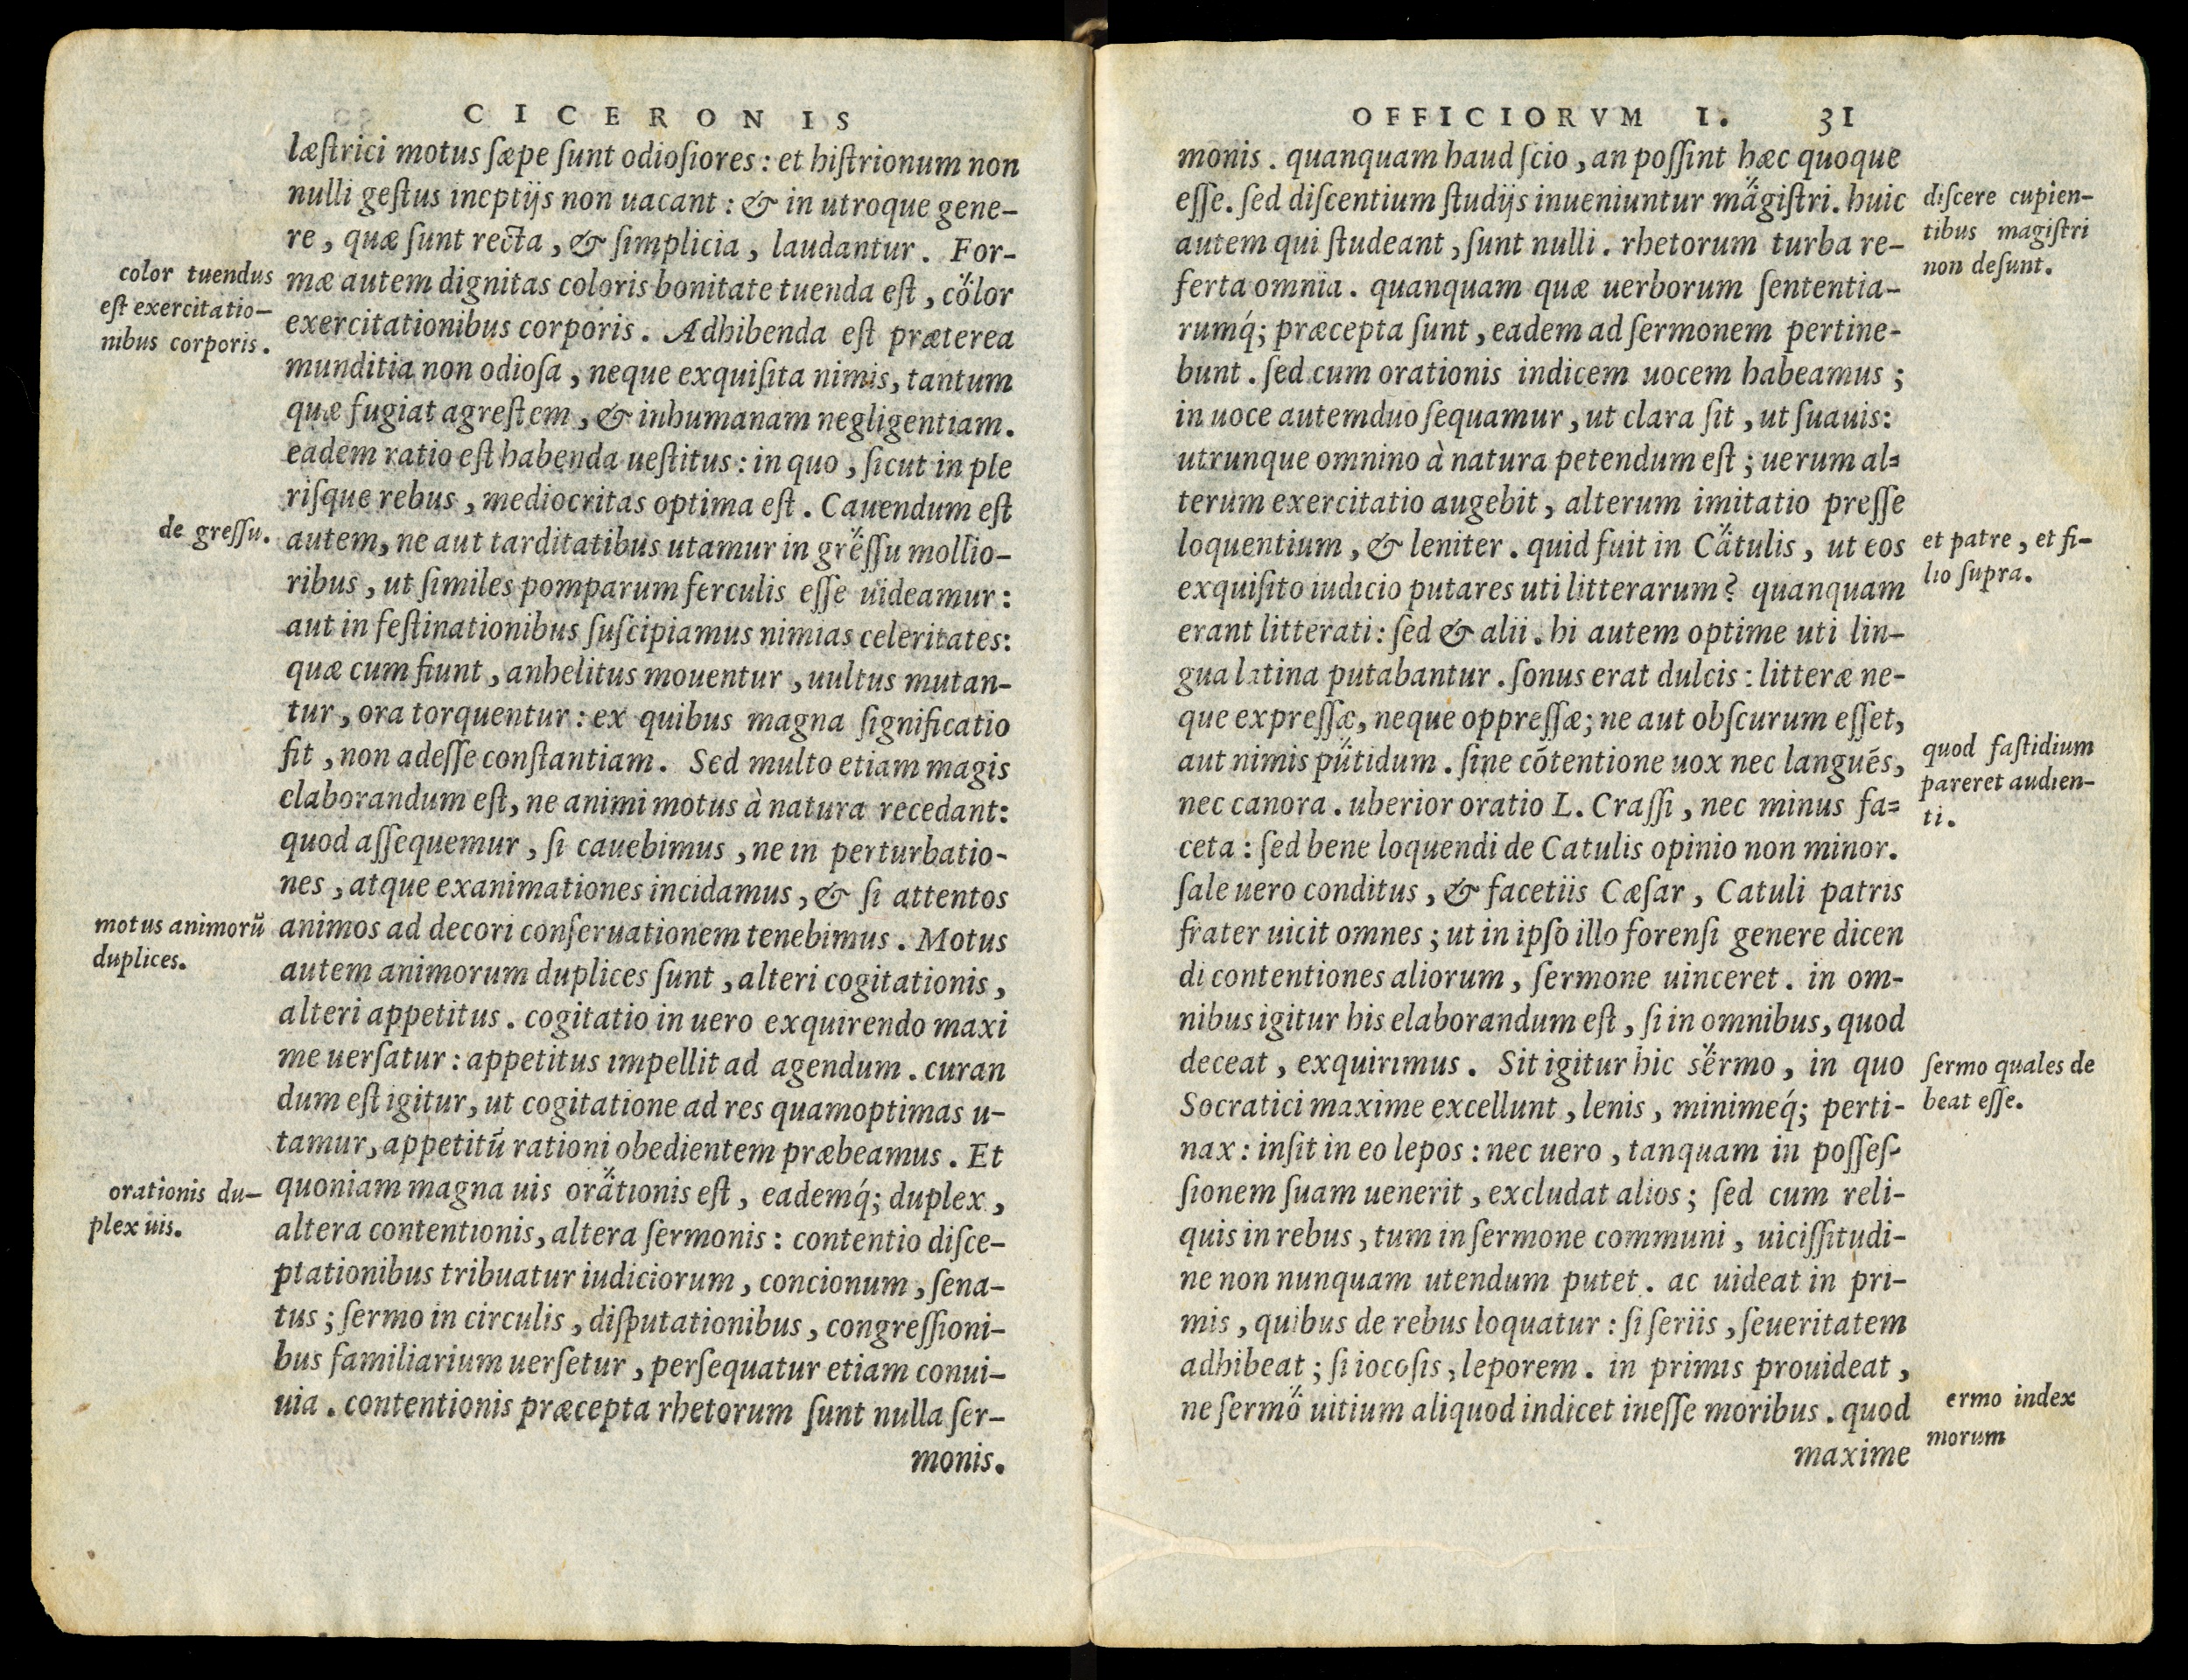 CICERONIS
læſtrici motus ſæpe ſunt odioſiores: et hiſtrionum non
nulli geſtus ineptijs non uacant: & in utroque gene-
re, quæ ſunt recta, & ſimplicia, laudantur. For-
color tuendus
est exercitatio-
nibus corporis.
mæ autem dignitas coloris bonitate tuenda eſt, color
exercitationibus corporis. Adhibenda eſt præterea
munditia non odioſa, neque exquiſita nimis, tantum
quæ fugiat agreſtem, & inhumanam negligentiam.
eadem ratio eſt habenda ueſtitus: in quo, ſicut in ple
riſque rebus, mediocritas optima eſt. Cauendum eſt
de greſſu.
autem, ne aut tarditatibus utamur in greſſu mollio-
ribus, ut ſimiles pomparum ferculis eſſe uideamur:
aut in feſtinationibus ſuſcipiamus nimias celeritates:
quæ cum fiunt, anhelitus mouentur, uultus mutan-
tur, ora torquentur: ex quibus magna ſignificatio
fit, non adeſſe conſtantiam. Sed multo etiam magis
elaborandum eſt, ne animi motus à natura recedant:
quod aſſequemur, ſi cauebimus, ne in perturbatio-
nes, atque exanimationes incidamus, & ſi attentos
motus animorū
duplices.
animos ad decori conſeruationem tenebimus. Motus
autem animorum duplices ſunt, alteri cogitationis,
alteri appetitus. cogitatio in uero exquirendo maxi
me uerſatur: appetitus impellit ad agendum. curan
dum eſt igitur, ut cogitatione ad res quamoptimas u-
tamur, appetitū rationi obedientem præbeamus. Et
orationis du-
plex uis.
quoniam magna uis orationis eſt, eademq́; duplex,
altera contentionis, altera ſermonis: contentio diſce-
ptationibus tribuatur iudiciorum, concionum, ſena-
tus; ſermo in circulis, diſputationibus, congreſſioni-
bus familiarium uerſetur, perſequatur etiam conui-
uia. contentionis præcepta rhetorum ſunt nulla ſer-
monis.
OFFICIORVM I. 31
monis. quanquam haud ſcio, an poſſint hæc quoque
eſſe. ſed diſcentium ſtudijs inueniuntur magiſtri. huic
diſcere cupien-
tibus magiſtri
non deſunt.
autem qui ſtudeant, ſunt nulli. rhetorum turba re-
ferta omnia. quanquam quæ uerborum ſententia-
rumq́; præcepta ſunt, eadem ad ſermonem pertine-
bunt. ſed cum orationis indicem uocem habeamus;
in uoce autem duo ſequamur, ut clara ſit, ut ſuauis:
utrunque omnino à natura petendum eſt; uerum al=
terum exercitatio augebit, alterum imitatio preſſe
loquentium, & leniter. quid fuit in Catulis, ut eos
et patre, et fi-
lio ſupra.
exquiſito iudicio putares uti litterarum? quanquam
erant litterati: ſed & alii. hi autem optime uti lin-
gua latina putabantur. ſonus erat dulcis: litteræ ne-
que expreſſæ, neque oppreſſæ; ne aut obſcurum eſſet,
aut nimis putidum. ſine cōtentione uox nec langués,
quod faſtidium
pareret audien-
ti.
nec canora. uberior oratio L. Craſſi, nec minus fa=
ceta: ſed bene loquendi de Catulis opinio non minor.
ſale uero conditus, & facetiis Cæſar, Catuli patris
frater uicit omnes; ut in ipſo illo forenſi genere dicen
di contentiones aliorum, ſermone uinceret. in om-
nibus igitur his elaborandum eſt, ſi in omnibus, quod
deceat, exquirimus. Sit igitur hic sermo, in quo
ſermo quales de
beat eſſe.
Socratici maxime excellunt, lenis, minimeq́; perti-
nax: inſit in eo lepos: nec uero, tanquam in poſſeſ-
ſionem ſuam uenerit, excludat alios; ſed cum reli-
quis in rebus, tum in ſermone communi, uiciſſitudi-
ne non nunquam utendum putet. ac uideat in pri-
mis, quibus de rebus loquatur: ſi ſeriis, ſeueritatem
adhibeat; ſi iocoſis, leporem. in primis prouideat,
ne ſermo uitium aliquod indicet ineſſe moribus. quod
ermo index
morum
maxime